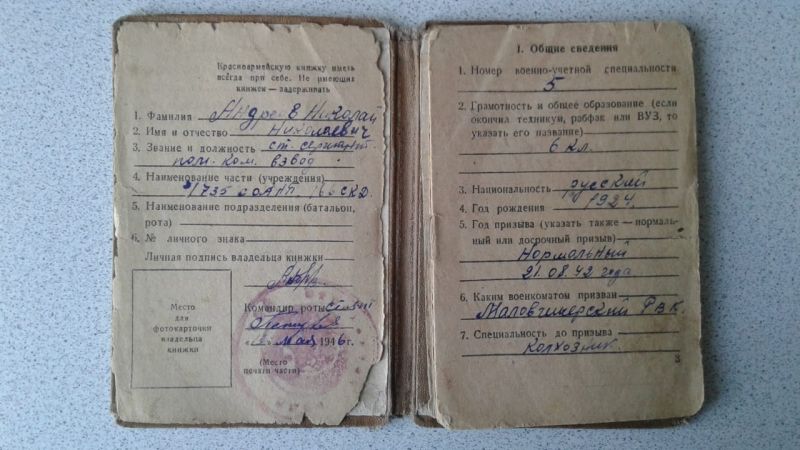 Красноармейскую книжку иметь
всегда при себе. Не имеющих
книжек — задерживать
1. Фамилия Андреев Николай
2. Имя и отчество Николаевич
3. Звание и должность ст. сержант
пом. ком. взвод
4. Наименование части (учреждения)
1735
5. Наименование подразделения (батальон,
рота)
6. № личного знака
Личная подпись владельца книжки
Место
для
фотокарточки
владельца
книжки
Командир роты
Май 1946 г.
(Место
печати части)
I. Общие сведения
1. Номер военно-учетной специальности
5
2. Грамотность и общее образование (если
окончил техникум, рабфак или ВУЗ, то
указать его название)
6 кл.
3. Национальность русский
4. Год рождения 1924
5. Год призыва (указать также — нормаль-
ный или досрочный призыв)
Нормальный
21.08.42 года
6. Каким военкоматом призван
РВК
7. Специальность до призыва
Колхозник
3